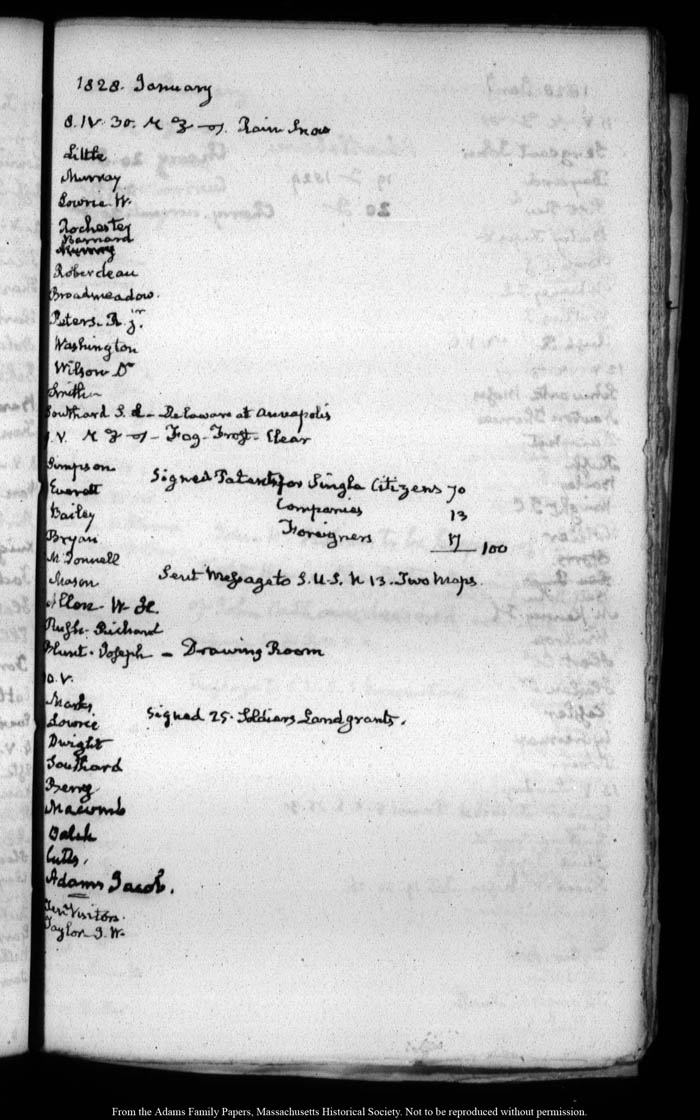 1828. January
8. IV. 30. Rain Snow
Little
Murray
Lowrie W.
Rochester
Barnard
Murray
Roberdeau
Broadmeadow.
Peters. R. jr.
Washington
Wilson Dr
Smith
Southard S. L - Delaware at Annapolis
V. Fog - Frost - Clear
Simpson
Signed Patents for Single Citizens 70
Everett
Companies 13
Bailey
Foreigners 17 100
Bryan
McDonnell
Sent Message to S. U. S. N 13. Two Maps.
Mason
Rush. Richard
Blunt. Joseph - Drawing Room
10. V.
Marks
Signed 25. Soldiers Land grants.
Lowrie
Dwight
Southard
Berry
Macomb
Balch
Cutts.
Adams Jacob.
Visitors.
Taylor J. W.
From the Adams Family Papers, Massachusetts Historical Society. Not to be reproduced without permission.